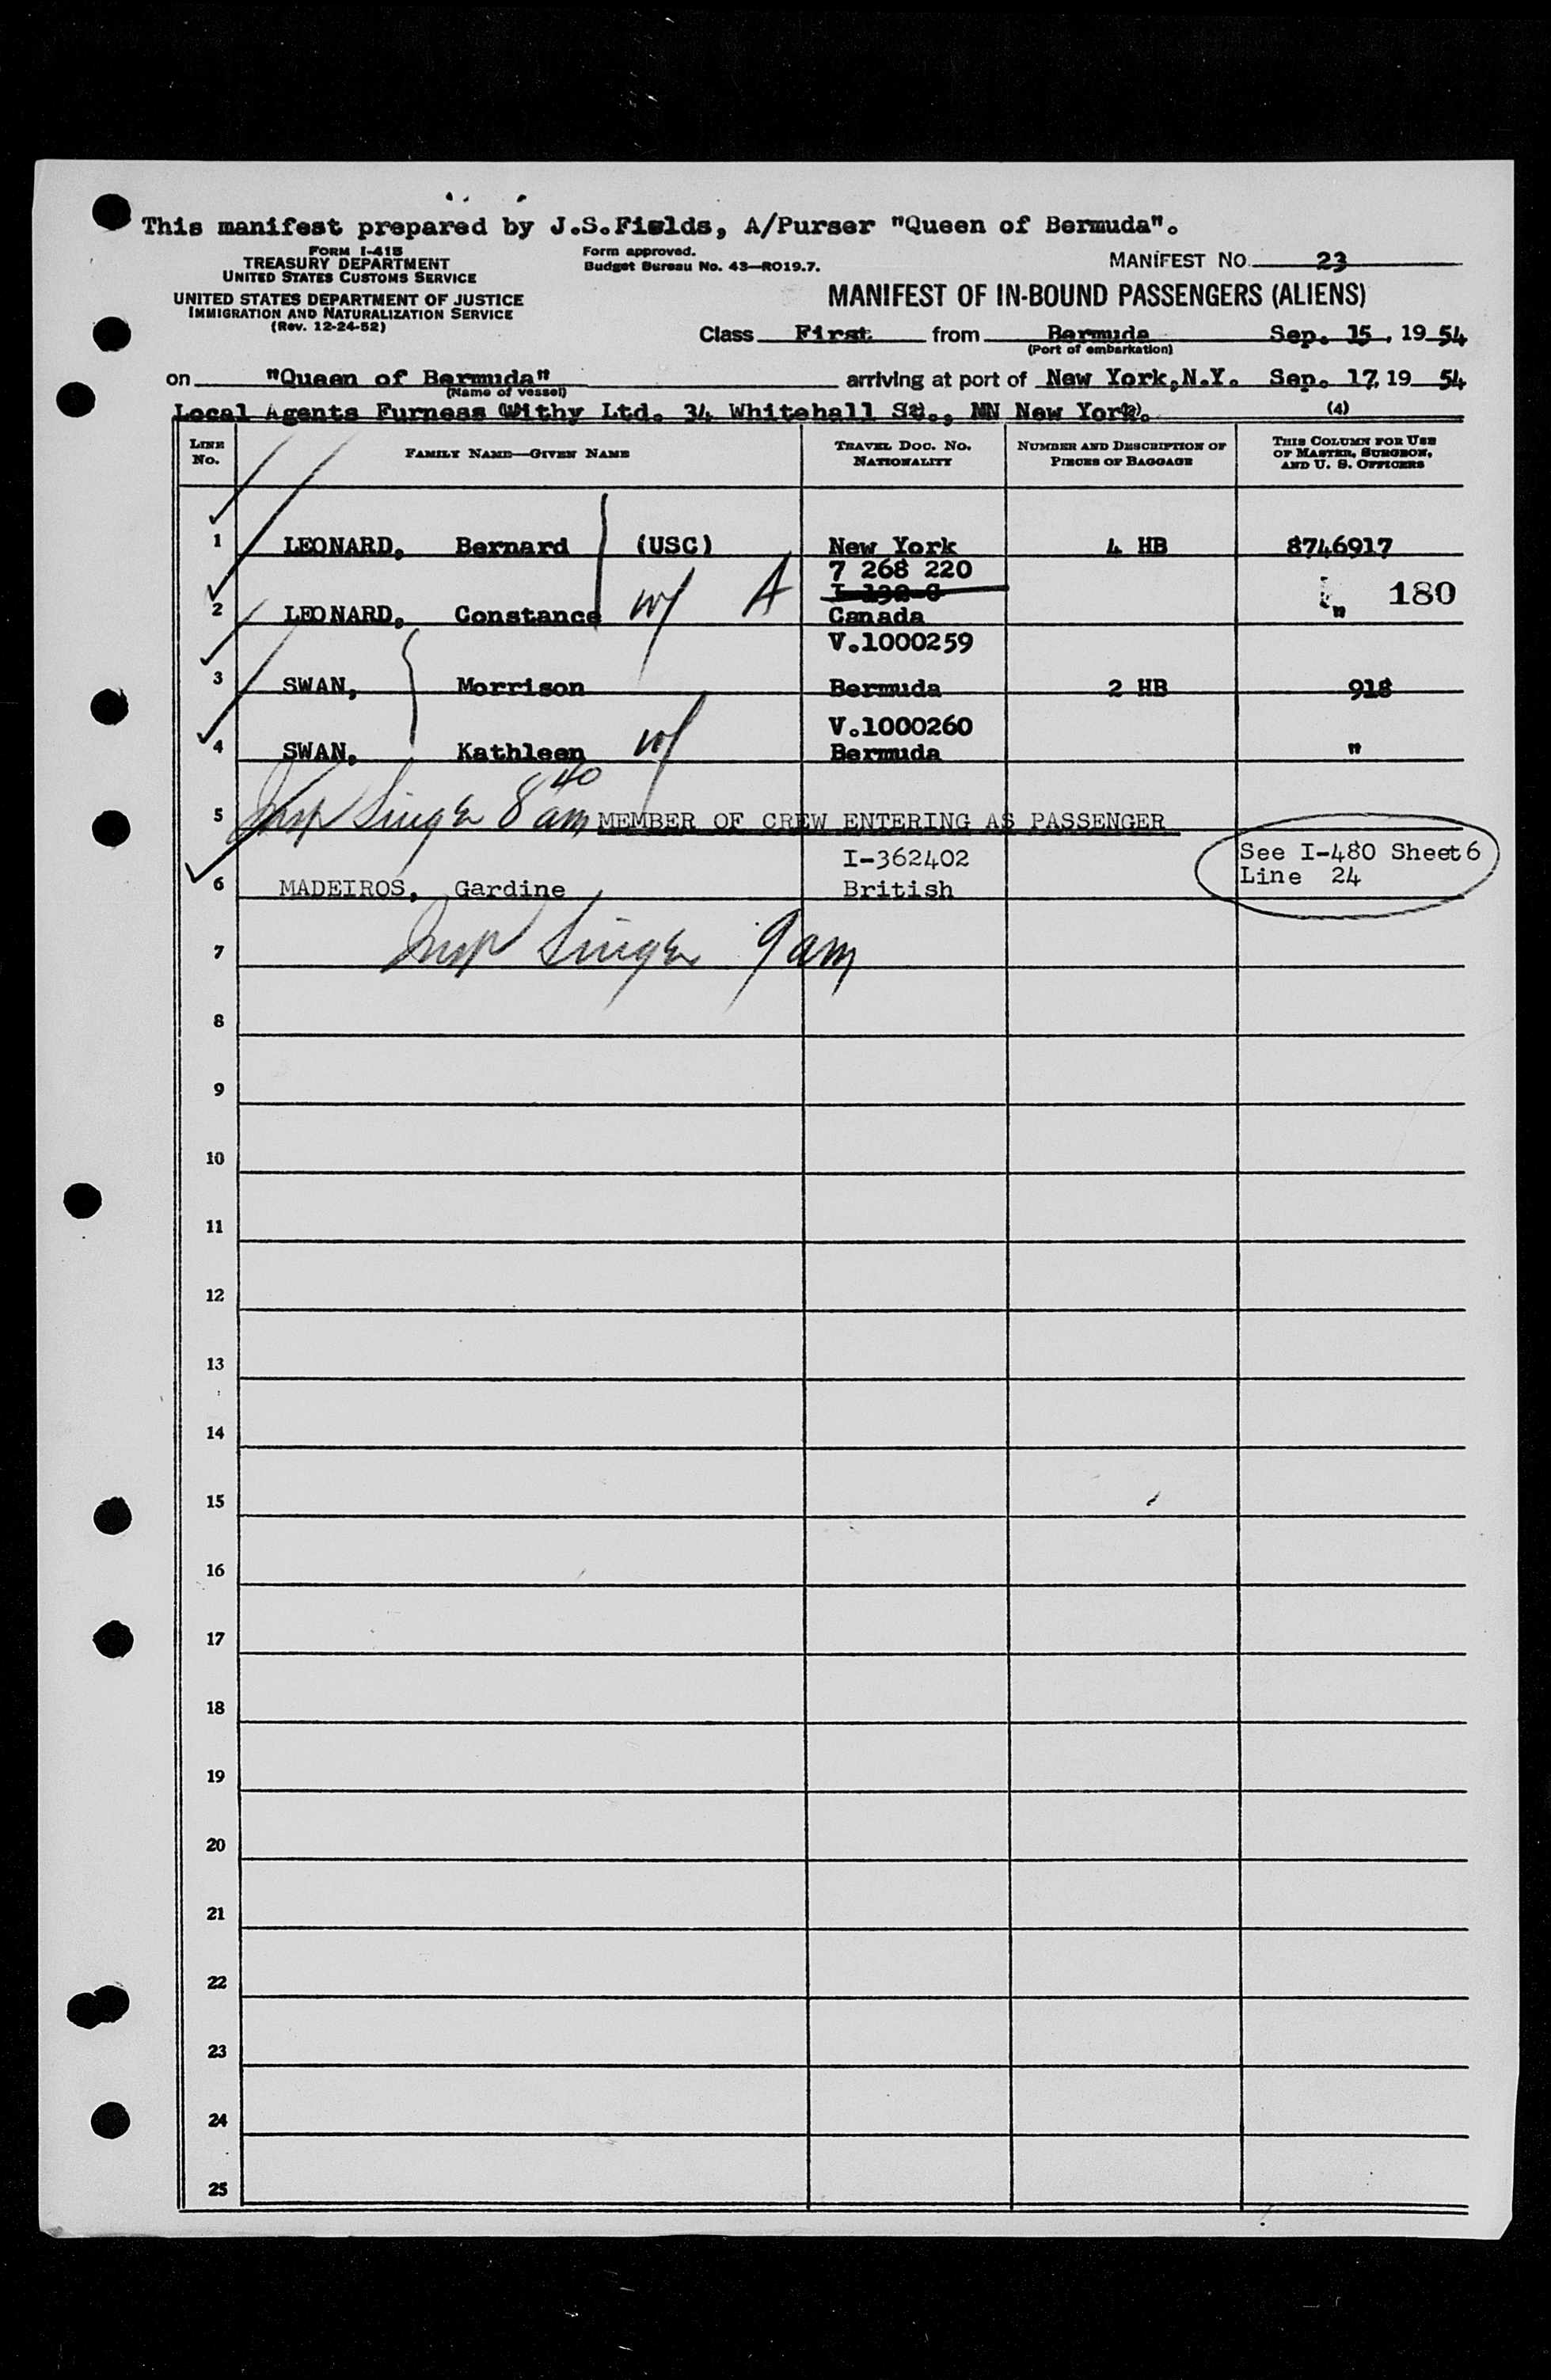 This manifest prepared by J.S.Fields, A/Purser "Queen of Bermuda".
FORM I-415
TREASURY DEPARTMENT
UNITED STATES CUSTOMS SERVICE
UNITED STATES DEPARTMENT OF JUSTICE
IMMIGRATION AND NATURALIZATION SERVICE
(Rev. 12-24-52)
Form approved.
Budget Bureau No. 43—RO19.7.
MANIFEST NO. 23
MANIFEST OF IN-BOUND PASSENGERS (ALIENS)
Class First from Bermuda Sep. 15, 19 54
(Port of embarkation)
on "Queen of Bermuda" arriving at port of New York,N.Y. Sep. 17, 19 54
(Name of vessel)
Local Agents Furness Withy Ltd. 34 Whitehall St., NN New York. (4)
LINE NO. FAMILY NAME—GIVEN NAME TRAVEL DOC. NO. NATIONALITY NUMBER AND DESCRIPTION OF PIECES OF BAGGAGE THIS COLUMN FOR USE OF MASTER, SURGEON, AND U. S. OFFICERS
1 LEONARD, Bernard (USC) New York 4 HB 8746917
7 268 220
2 LEONARD, Constance w/ A Canada " 180
V.1000259
3 SWAN, Morrison Bermuda 2 HB 918
V.1000260
4 SWAN, Kathleen w/ Bermuda "
5 Insp Singer 8 40 am MEMBER OF CREW ENTERING AS PASSENGER
I-362402 See I-480 Sheet 6
6 MADEIROS, Gardine British Line 24
7 Insp Singer 9 am
8
9
10
11
12
13
14
15
16
17
18
19
20
21
22
23
24
25